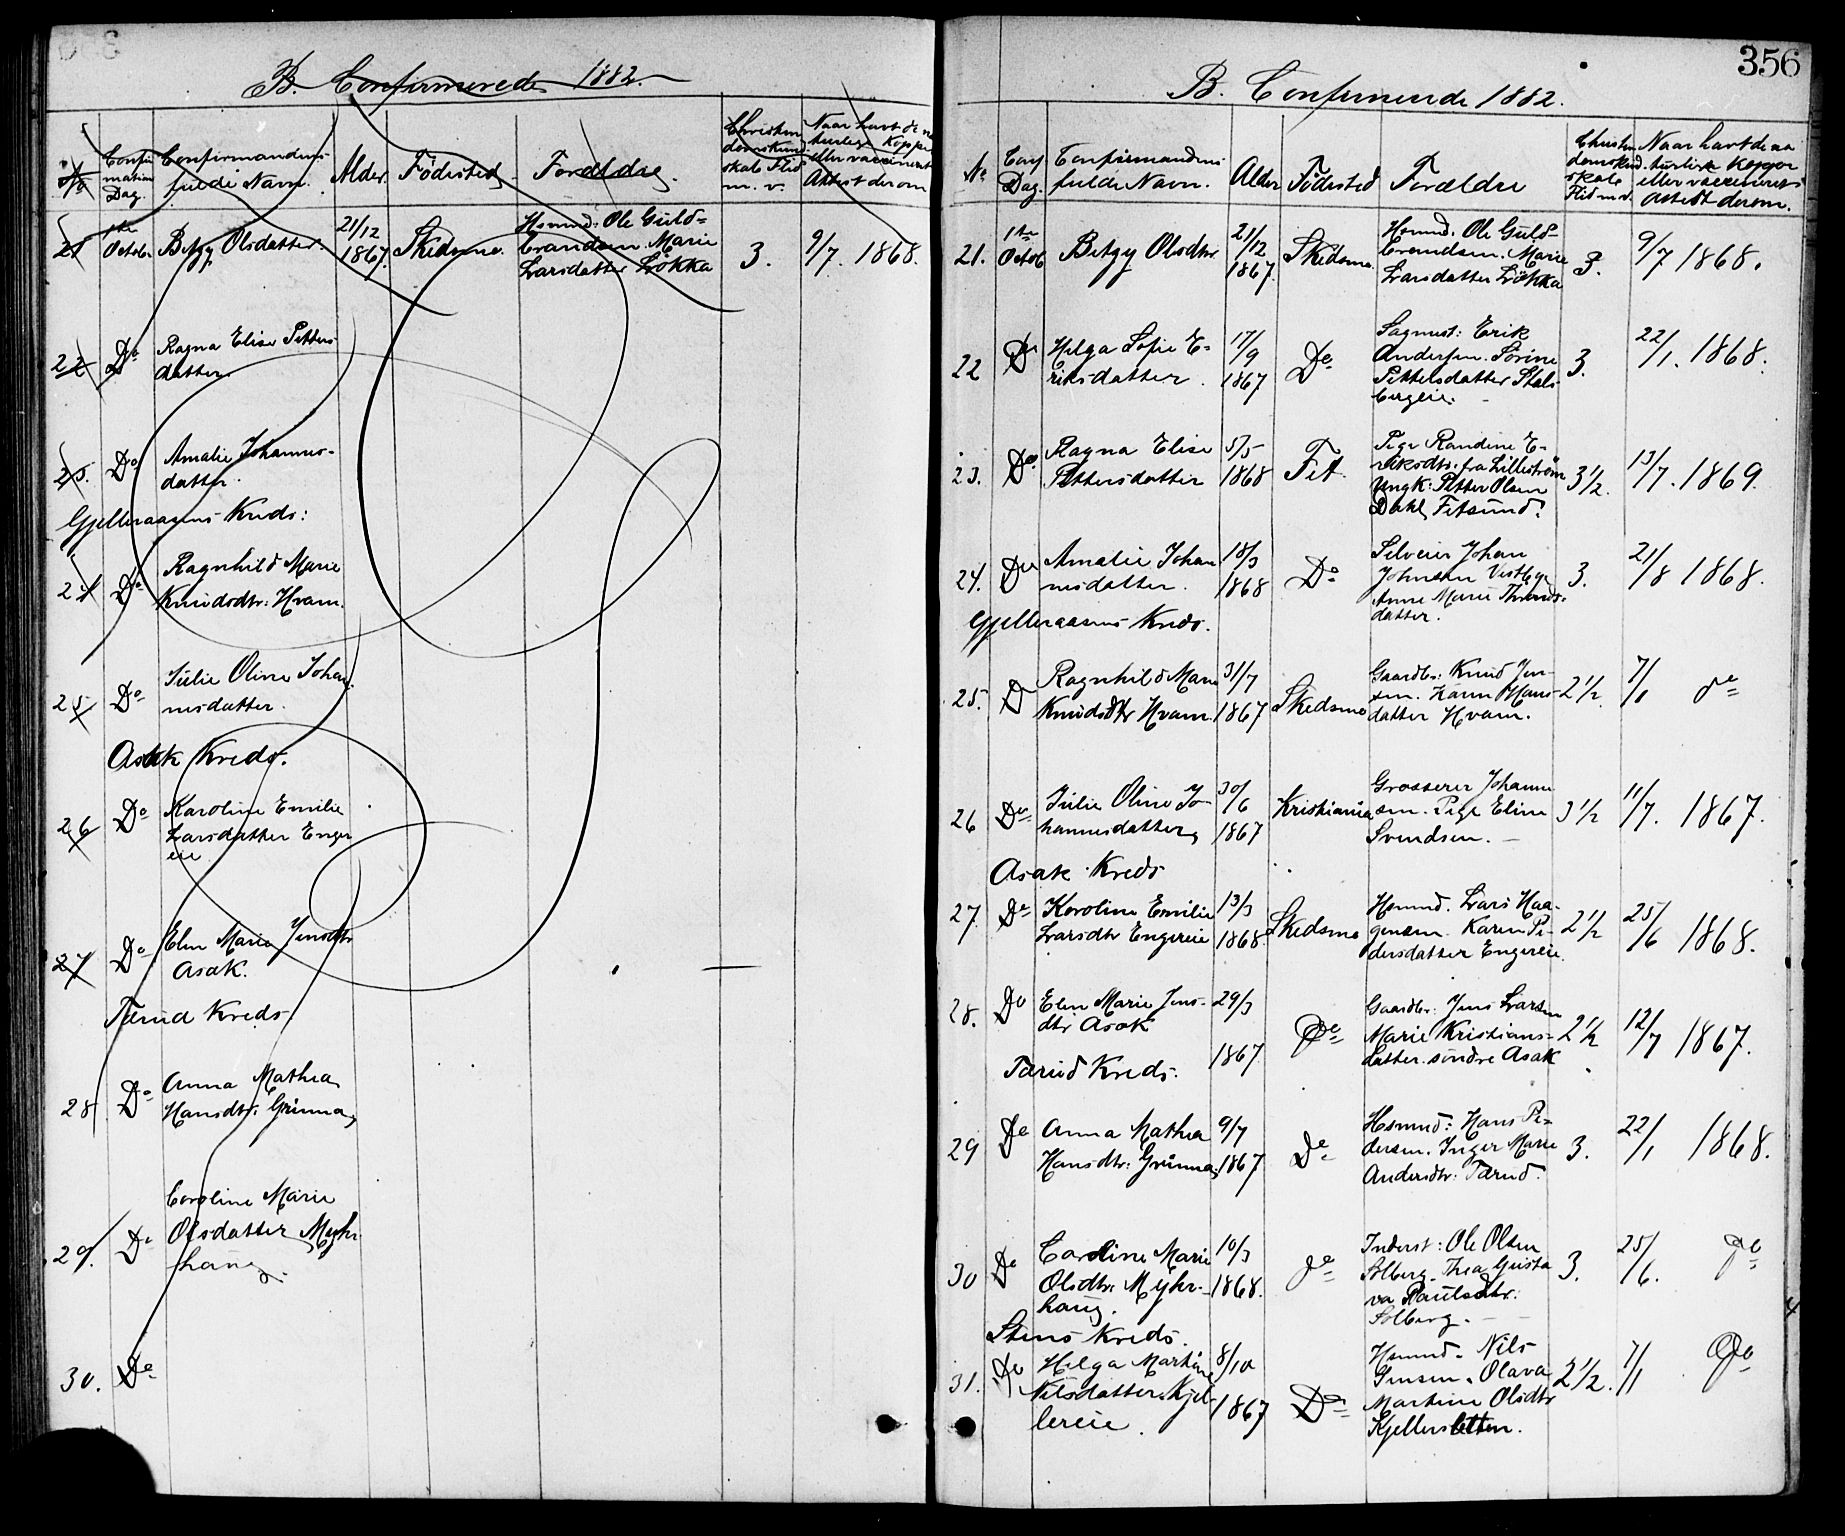 B. Confirmerede 1882.
No
Confirmations Dag.
Confirmandens fulde Navn.
Alder
Fødested
Forældre.
Christendomskundskab Flid m. v.
Naar havt de naturlige Kopper eller vaccineret Attest derom
21
1ste Octob.
Betzy Olsdatter.
21/12 1867.
Skedsmo.
Hsmnd. Ole Guld-
brandsen. Marie
Larsdatter Løkka
3.
9/7. 1868.
22
Do
Ragna Elise Petters-
datter.
23.
Do
Amalie Johannes-
datter.
Gjelleraasens Kreds:
24
Do
Ragnhild Marie
Knudsdtr. Hvam.
25
Do
Julie Oline Johan-
nesdatter.
Asak Kreds.
26
Do
Karoline Emilie
Larsdatter Enger-
eie
27
Do
Elen Marie Jensdtr
Asak.
Tærud Kreds
28
Do
Anna Mathea
Hansdtr. Grinna
29.
Do
Caroline Marie
Olsdatter Myhr-
haug.
30.
Do
356
B. Confirmerede 1882.
No
Conf Dag.
Confirmandens fulde Navn.
Alder
Fødested
Forældre
Christendomskundskab Flid m. v.
Naar havt de naturlige Kopper eller vaccineret attest derom.
21.
1ste Octob
Betzy Olsdtr.
21/12 1867
Skedsmo.
Hsmnd. Ole Guld-
brandsen. Marie
Larsdatter Løkka
3.
9/7 1868.
22
Do
Helga Sofie E-
riksdatter.
17/9 1867
Do
Sagmest: Erik
Andersen. Sørine
Pettelsdatter Stals-
bergeie.
3.
22/1. 1868.
23.
Do
Ragna Elise
Pettersdatter
5/5 1868
Fet
Pige Randine E-
riksdtr. fra Lillestrøm
Ungk: Petter Olsen
Dahl, Fetsund.
3 1/2.
13/7. 1869.
24.
Do
Amalie Johan
nesdatter.
18/3 1868
Do
Selveier Johan
Johnsen Vestbye
Anne Marie
datter.
3.
21/8 1868.
Gjelleraasens Kreds.
25.
D
Ragnhild Marie
Knudsdtr Hvam.
31/7 1867
Skedsmo
Gaardbr: Knud Jen-
sen. Karen Hans-
datter Hvam.
2 1/2.
7/1
do
26
Do
Julie Oline Jo-
hannesdatter
30/6 1867
Kristiania
Grosserer Johanne
sen. Pige Eline
Svendsen.
3 1/2
11/7. 1867.
Asak Kreds
27.
Do
Karoline Emilie
Larsdtr Engereie
13/3 1868
Skedsmo
Hsmnd. Lars Haa-
gensen. Karen Pe-
dersdatter Engereie.
2 1/2
25/6 1868.
28.
Do
Elen Marie Jens-
dtr Asak
29/3
1867
Do
Gaardbr: Jens Larsen
Marie Kristians-
datter. søndre Asak
2 1/2
12/7 1867.
Tærud Kreds.
29
Do
Anna Mathea
Hansdtr. Grinna
9/7 1867
Do
Hsmnd: Hans Pe-
dersen. Inger Marie
Andersdtr. Tærud.
3.
22/1 1868.
30
Do
Caroline Marie
Olsdtr. Myhr-
haug.
10/3 1868.
do
Inderst: Ole Olsen
Solberg. Thea Gusta
va Paulsdtr.
Solberg.
3.
25/6.
do
Stens Kreds.
31.
Do
Helga Martine
Nilsdatter. Kjel-
lereie.
8/10 1867
Do
Hsmnd. Nils
Jensen. Olava
Martine Olsdtr
Kjellersletten.
2 1/2.
7/1
Do